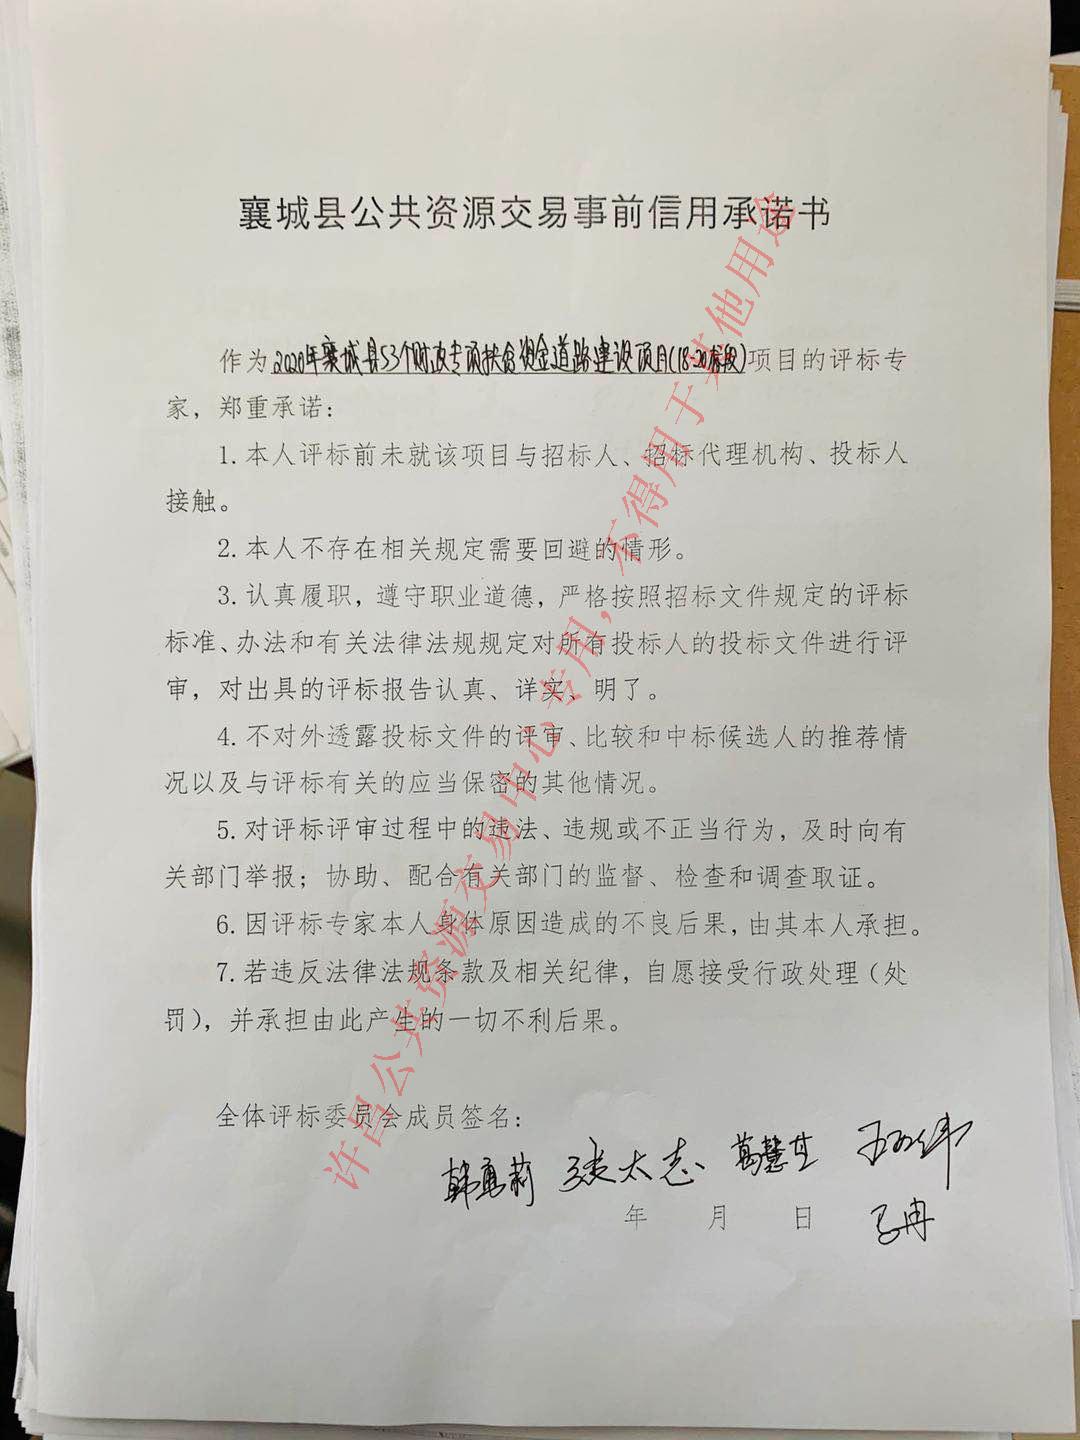 襄城县公共资源交易事前信用承诺书
作为2020年襄城县53个财政专项扶贫资金道路建设项目(18-20标段)项目的评标专
家，郑重承诺：
1.本人评标前未就该项目与招标人、招标代理机构、投标人
接触。
2.本人不存在相关规定需要回避的情形。
3.认真履职，遵守职业道德，严格按照招标文件规定的评标
标准、办法和有关法律法规规定对所有投标人的投标文件进行评
审，对出具的评标报告认真、详实、明了。
4.不对外透露投标文件的评审、比较和中标候选人的推荐情
况以及与评标有关的应当保密的其他情况。
5.对评标评审过程中的违法、违规或不正当行为，及时向有
关部门举报；协助、配合有关部门的监督、检查和调查取证。
6.因评标专家本人身体原因造成的不良后果，由其本人承担。
7.若违反法律法规条款及相关纪律，自愿接受行政处理（处
罚），并承担由此产生的一切不利后果。
全体评标委员会成员签名：
张太志
年 月 日
许昌公共资源交易中心专用，不得用于其他用途